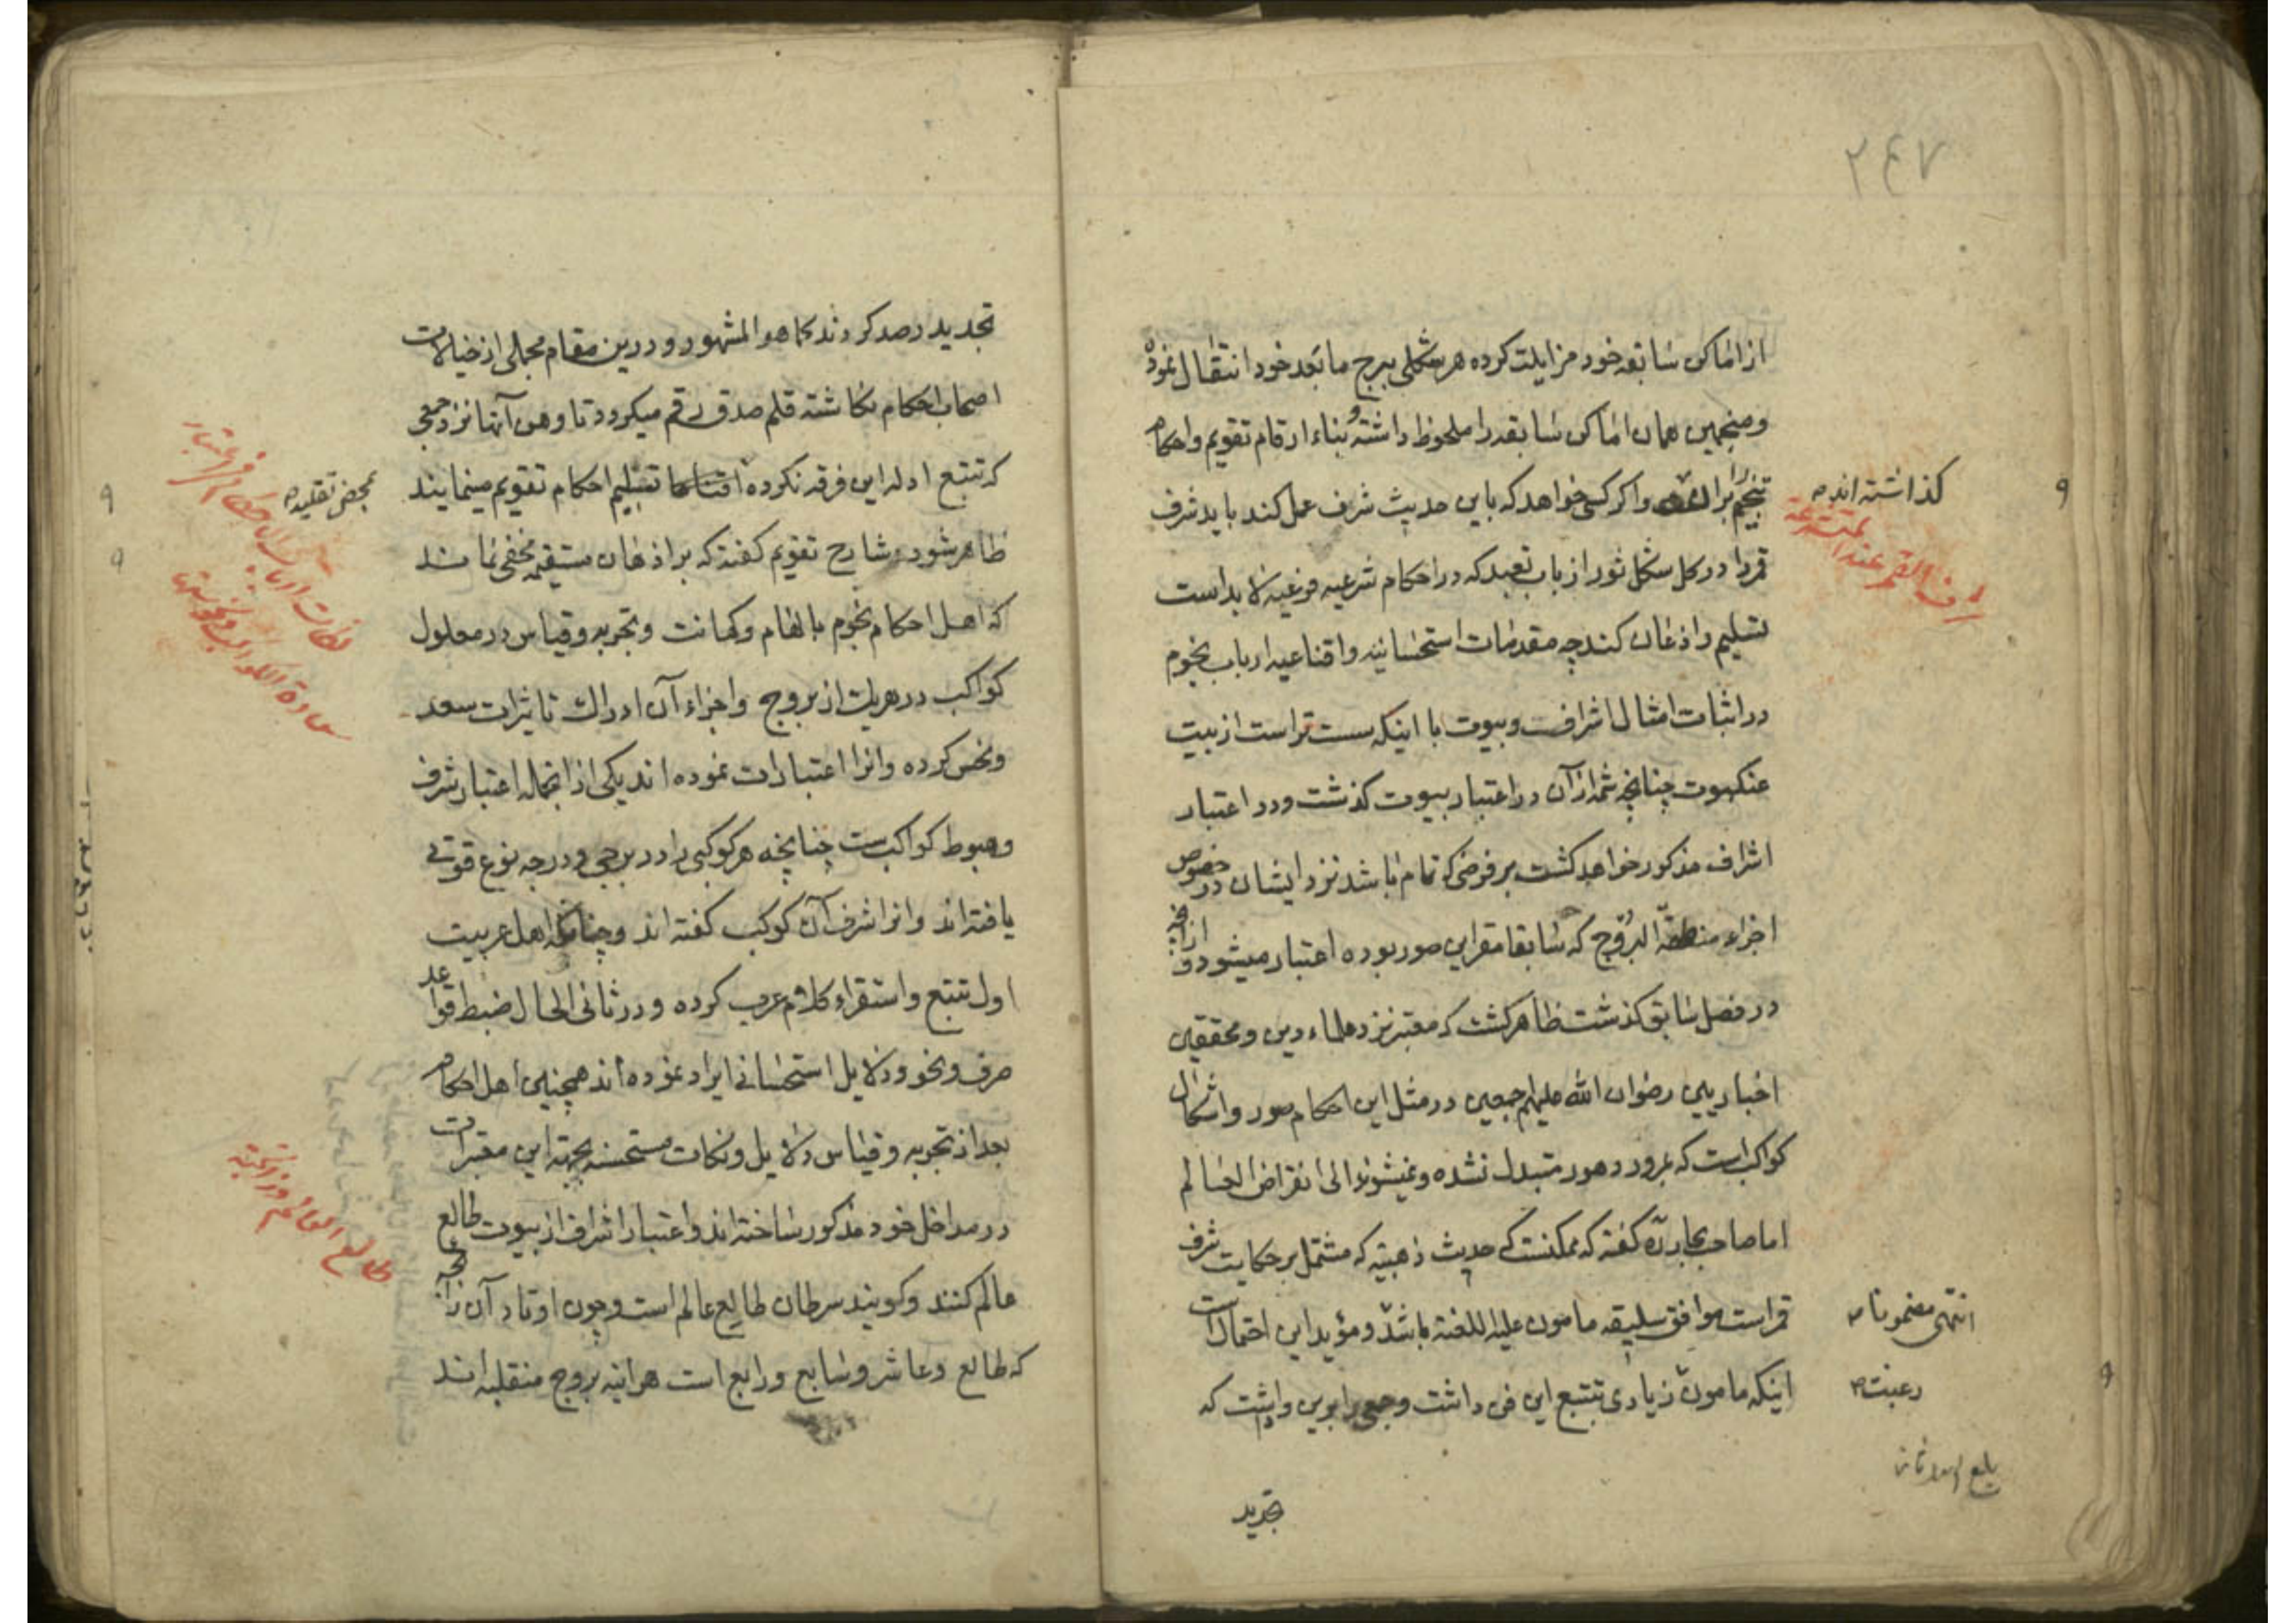 ۲۴۷
از اماکن سابقه خود مزایلت کرده هر شکلی ببرج مابعد خود انتقال نموده
ومنجمین همان اماکن سابقه را ملحوظ داشته و بناء ارقام تقویم واحکام
تنجیم را بران واکر کسی خواهد که باین حدیث شرف عمل کند باید شرف
کذاشته اند
شرف القمر عند
قمر را در کل شکل ثور از باب تعبد که در احکام شرعیه فرعیه لابد است
تسلیم واذعان کند چه مقدمات استحسانیه واقناعیه ارباب نجوم
در اثبات امثال اشراف وبیوت با اینکه سست تر است از بیت
عنکبوت چنانچه شمه از آن در اعتبار بیوت کذشت ودر اعتبار
اشراف مذکور خواهد کشت بر فرضی که تمام باشد نزد ایشان در خصوص
اجزاء منطقة البروج که سابقا مقر این صور بوده اعتبار میشود و از آنچه
در فصل سابق کذشت ظاهر کشت که معتبر نزد علماء دین ومحققین
اخباریین رضوان الله علیهم اجمعین در مثل این احکام صور واشکال
کواکب است که بمرور دهور متبدل نشده ونمیشوند الی انقراض العالم
اما صاحب بحار ره کفته که ممکنست که حدیث ذهبیه که مشتمل بر حکایت شرف
قمر است موافق سلیقه مامون علیه اللعنة باشد ومؤید این احتمال است
انتهی مضمونا
اینکه مامون زیادی تتبع این فن داشت وجمعی را برین واشت که
رغبت
بلغ
تجدید
تجدید رصد کردند کما هو المشهور ودرین مقام مجملی از خیالات
اصحاب احکام نکاشته قلم صدق رقم میکردد تا وهن آنها نزد جمعی
که تتبع ادله این فرقه نکرده تسلیم احکام تقویم مینمایند
بمحض تقلید
ظاهر شود وشارح تقویم کفته که بر اذهان مستقیمه مخفی نماند
که اهل احکام نجوم بالهام وکهانت وتجربه وقیاس در معلول
کواکب در هریک از بروج واجزاء آن ادراک تاثیرات سعد
ونحس کرده وانرا اعتبارات نموده اند یکی از انجمله اعتبار شرف
وهبوط کواکبست چنانچه هر کوکبی را در برجی ودرجه نوع قوتی
یافته اند وانرا شرف آن کوکب کفته اند وچنانکه اهل عربیت
اول تتبع واستقراء کلام عرب کرده ودر ثانی الحال ضبط قواعد
صرف ونحو ودلایل استحسانی ایراد نموده اند همچنین اهل احکام
بعد از تجربه وقیاس دلایل ونکات مستحسنه بجهة این معتبرات
در مداخل خود مذکور ساخته اند واعتبار اشراف از بیوت طالع
طالع العالم
عالم کنند وکویند سرطان طالع عالم است وچون اوتاد آن
که طالع وعاشر وسابع ورابع است هرآینه بروج منقلبه اند